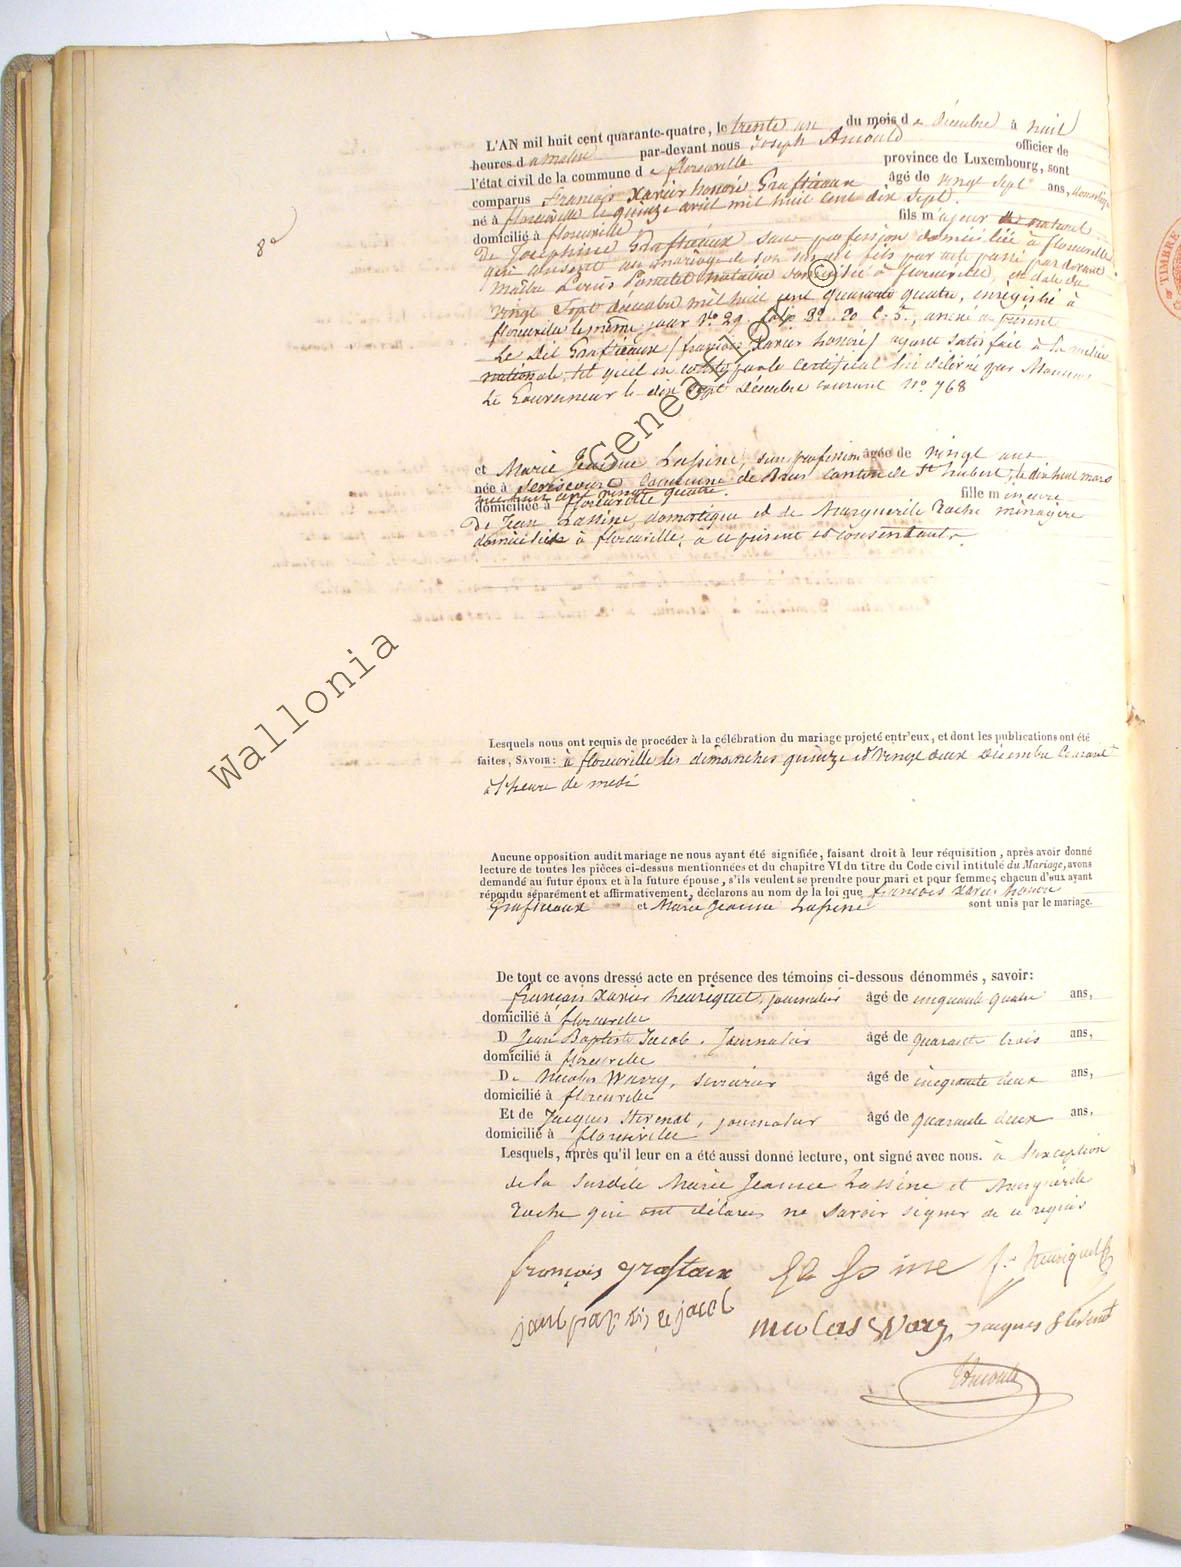 L'AN mil huit cent quarante-quatre, le trente un du mois de décembre à huit
heures du matin par-devant nous Joseph Arnould officier de
l'état civil de la commune de florenville province de Luxembourg, sont
comparus François Xavier honoré Grafteaux âgé de vingt sept ans, domestique
né à florenville le quinze avril mil huit cent dix sept.
domicilié à florenville fils majeur naturel
De Joséphine Graftieaux sans profession domiciliée à florenville
qui consent au mariage de son fils par acte passé par devant
Maître Louis notaire à florenville, en date du
vingt sept décembre mil huit cent quarante quatre, enrégistré à
florenville le même jour No. 29, annexé au présent
Le dit Graftieaux (francois Xavier honoré) ayant satisfait à la milice
nationale, tel qu'il en conste par le certificat lui délivré par Monsieur
Le Gouverneur le dix sept Décembre courant No. 768
8e
et Marie Jeanne Lassine, sans profession âgée de vingt ans
née à commune de Bras canton de St hubert, le dix huit mars
mil huit cent vingt quatre.
domiciliée à florenville fille mineure
De Jean Lassine, domestique et de Marguerite Roche ménagère
domiciliés à florenville, à ce présent et consentants.
Lesquels nous ont requis de procéder à la célébration du mariage projeté entr'eux, et dont les publications ont été
faites, SAVOIR: à florenville les dimanches quinze et vingt deux Décembre Courant
à l'heure de midi
Aucune opposition audit mariage ne nous ayant été signifiée, faisant droit à leur réquisition, après avoir donné
lecture de toutes les pièces ci-dessus mentionnées et du chapitre VI du titre du Code civil intitulé du Mariage, avons
demandé au futur époux et à la future épouse, s'ils veulent se prendre pour mari et pour femme; chacun d'eux ayant
répondu séparément et affirmativement, déclarons au nom de la loi que francois Xavier honoré
Graftieaux et Marie Jeanne Lassine sont unis par le mariage.
De tout ce avons dressé acte en présence des témoins ci-dessous dénommés, savoir:
françois Xavier henriquet, journalier âgé de cinquante quatre ans,
domicilié à florenville
D Jean Baptiste Jacob, Journalier âgé de quarante trois ans,
domicilié à florenville
De Nicolas Wavry, serrurier âgé de cinquante deux ans,
domicilié à florenville
Et de Jacques Stévenot, journalier âgé de quarante deux ans.
domicilié à florenville
Lesquels, après qu'il leur en a été aussi donné lecture, ont signé avec nous. à l'exception
de la susdite Marie Jeanne Lassine et Marguerite
Roche qui ont déclarés ne savoir signer de ce requis
françois graftaux Lassine f. henriquet
jacob nicolas Jacques Stevenot
Arnould
Wallonia GeneaFlor ©
TIMBRE